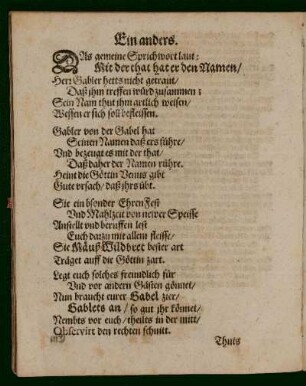 Ein anders.
DAs gemeine Sprichwort laut:
Mit der that hat er den Namen/
Herr Gabler hetts nicht getraut/
Daß ihn treffen würd zusammen:
Sein Nam thut ihm artlich weisen/
Wessen er sich soll befleissen.
Gabler von der Gabel hat
Seinen Namen daß ers führe/
Vnd bezeugt es mit der that/
Daß daher der Namen rühre.
Heint die Göttin Venus gibt
Gute vrsach/ daß jhrs übt.
Sie ein bsonder Ehren Fest
Vnd Mahlzeit von newer Speisse
Anstellt vnd beruffen lest
Euch darzu mit allem fleisse/
Sie Mäuß Wildbret bester art
Träget auff die Göttin zart.
Legt euch solches freundlich für
Vnd vor andern Gästen gönnet/
Nun braucht eurer Gabel zier/
Gablets an/ so gut jhr könnet/
Nembts vor euch/ theilts in der mitt/
Observirt den rechten schnitt.
Thuts